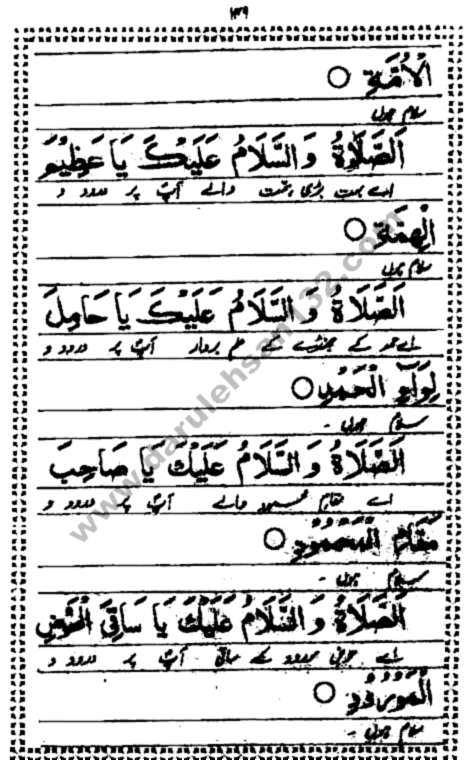 ۱۳۹
الْأُمَّةِ ○
سلام ہوں
اَلصَّلَاةُ وَالسَّلَامُ عَلَيْكَ يَا عَظِيْمَ
اے بہت بڑی ہمت والے آپؐ پر درود و
الْهِمَّةِ ○
سلام ہوں
اَلصَّلَاةُ وَالسَّلَامُ عَلَيْكَ يَا حَامِلَ
اے حمد کے جھنڈے کے علم بردار آپؐ پر درود و
لِوَآءِ الْحَمْدِ ○
سلام ہوں -
اَلصَّلَاةُ وَالسَّلَامُ عَلَيْكَ يَا صَاحِبَ
اے مقام محمود والے آپؐ پر درود و
مَقَامِ الْمَحْمُوْدِ ○
سلام ہوں -
اَلصَّلَاةُ وَالسَّلَامُ عَلَيْكَ يَا سَاقِيَ الْحَوْضِ
اے حوض مورود کے ساقی آپؐ پر درود و
الْمَوْرُوْدِ ○
سلام ہوں -
www.darulehsan132.com